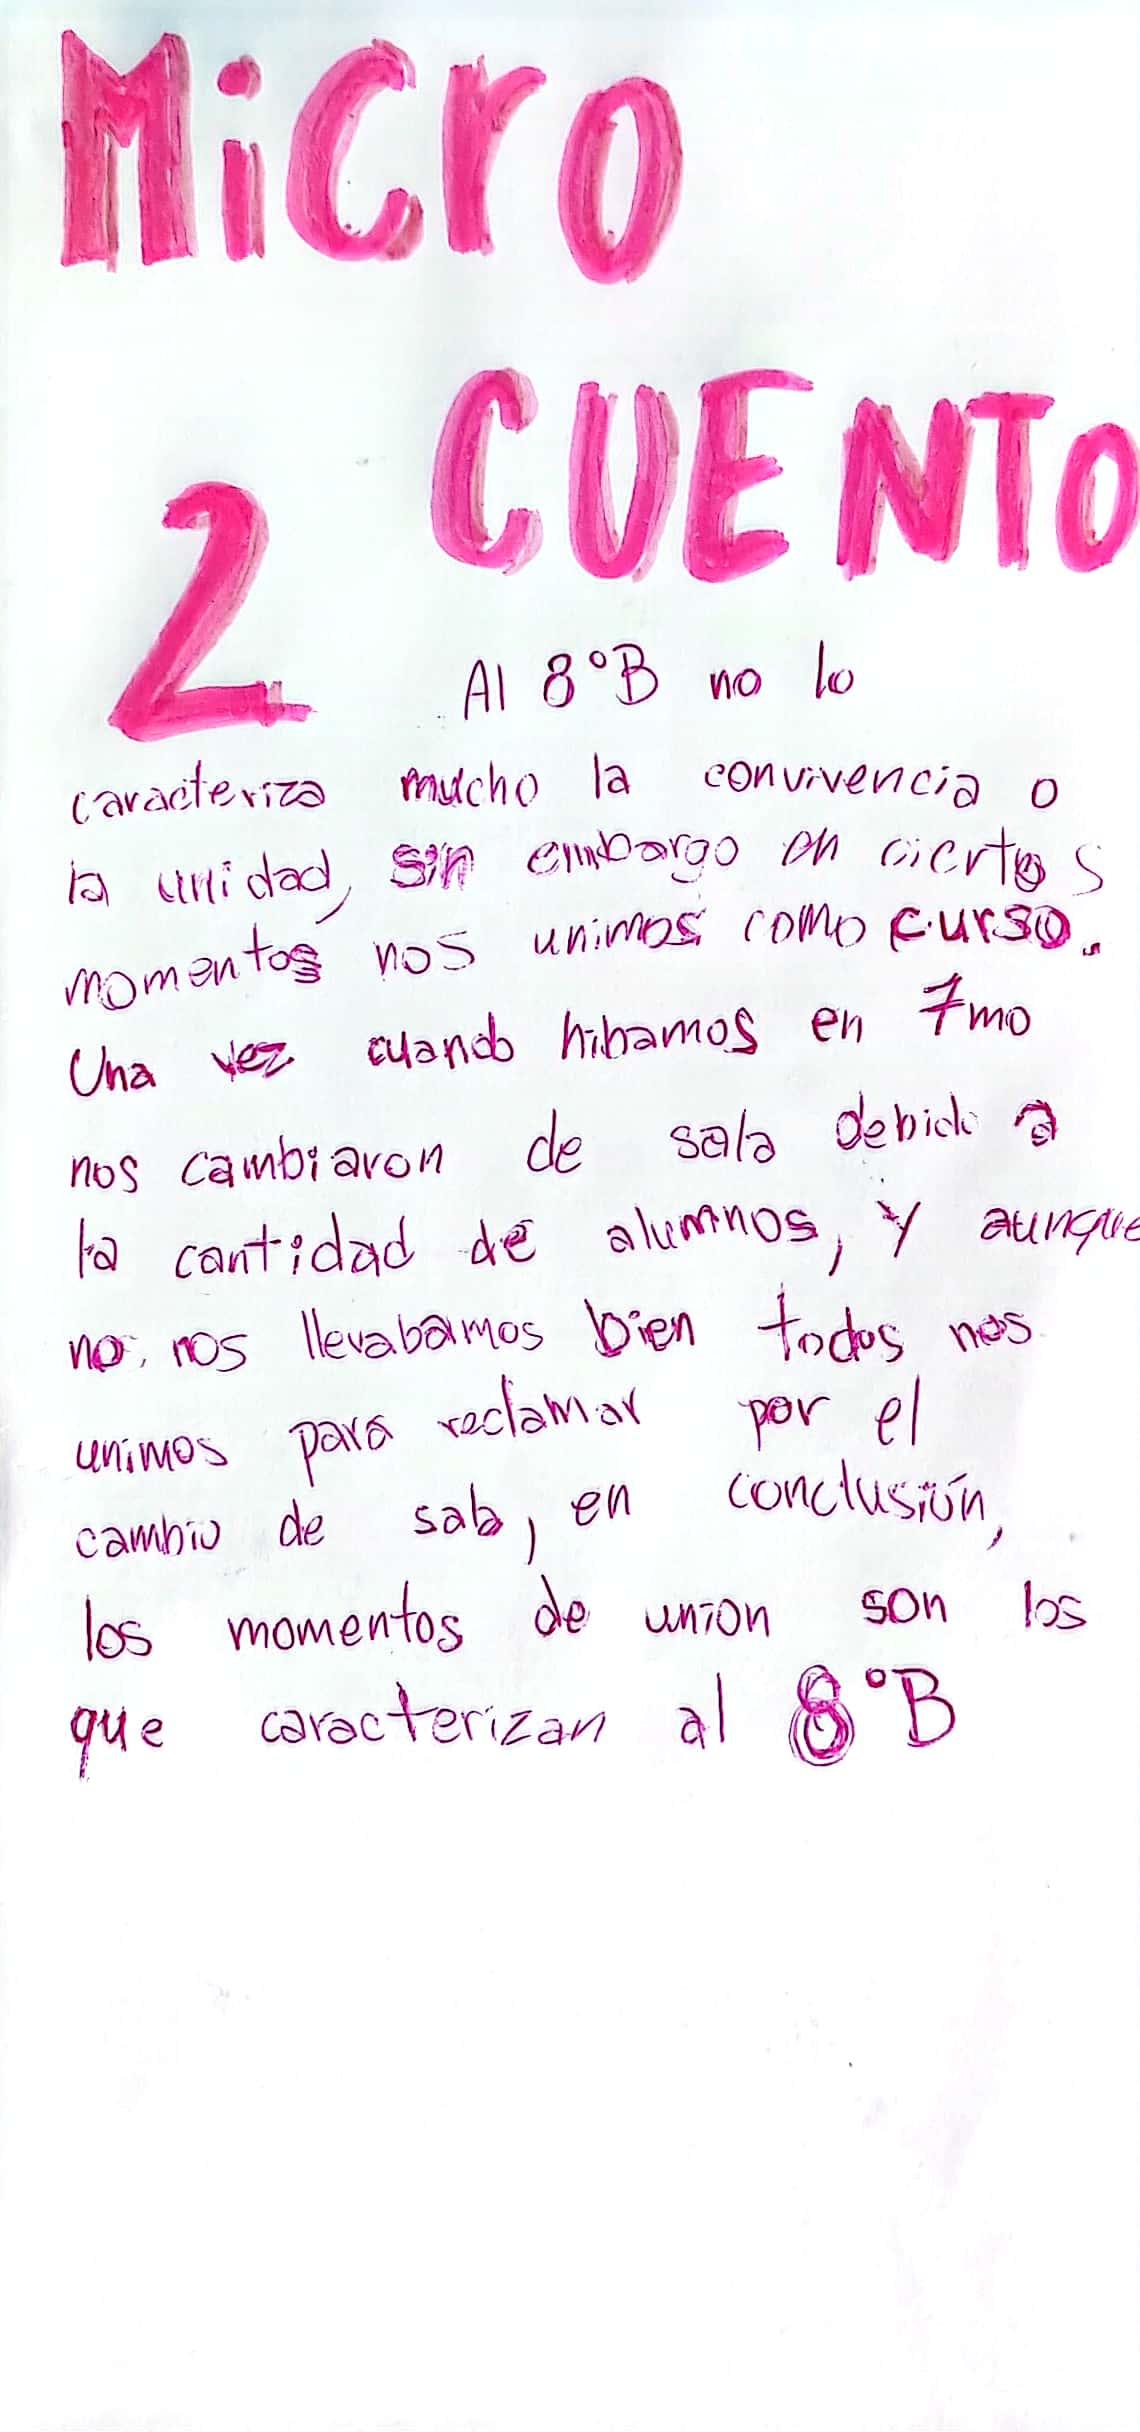 MiCrO
CUENTO
2
Al 8°B no lo
caracteriza mucho la convivencia o
la unidad, sin embargo en ciertos
momentos nos unimos como curso.
Una vez cuando hibamos en 7mo
nos cambiaron de sala debido a
la cantidad de alumnos, y aunque
no nos llevabamos bien todos nos
unimos para reclamar por el
cambio de sala, en conclusión,
los momentos de union son los
que caracterizan al 8°B